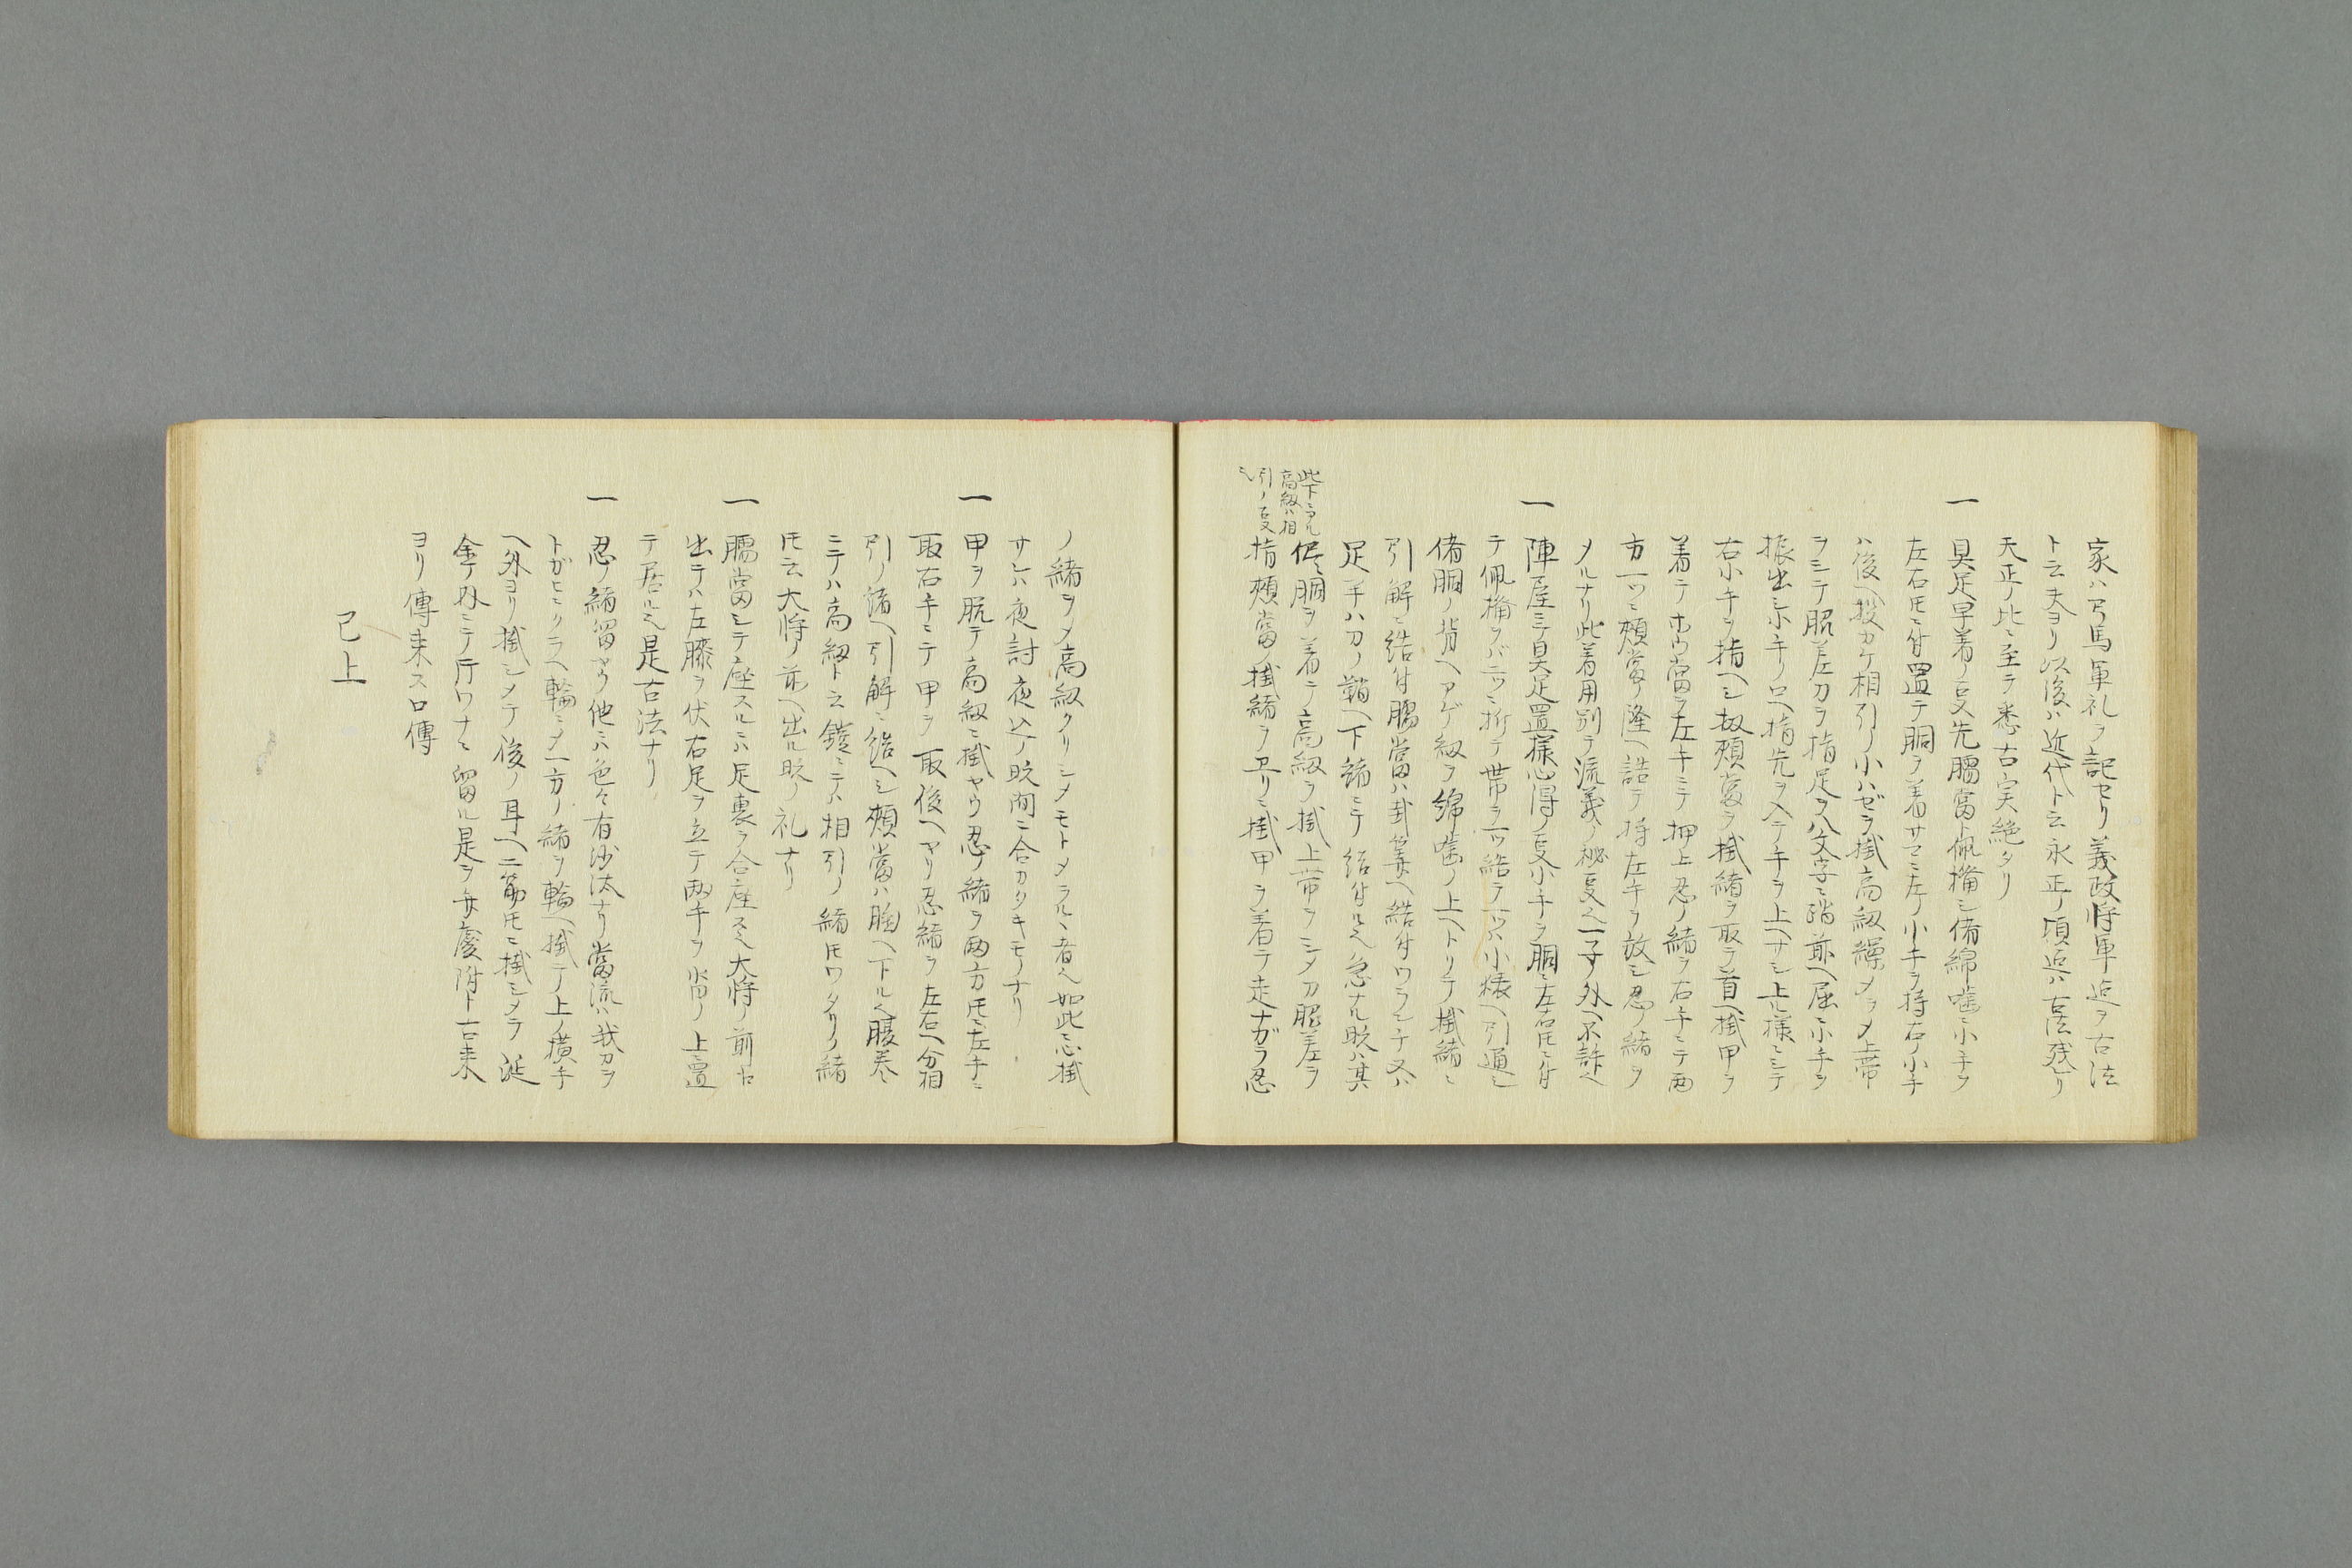 家ハ弓馬軍礼ヲ記セリ義政将軍迄ヲ古法
ト云夫ヨリ以後ハ近代ト云永正ノ頃迄ハ古法残リ
天正ノ比ニ至テ悉古実絶タリ
一 具足早着ノ叓先臑當ト佩楯シ偖綿噛ニ小手ヲ
左右𪜈ニ付置テ胴ヲ着サマニ左ノ小手ヲ持右ノ小手
ハ後ヘ投カケ相引ノ小ハゼヲ掛高紐繰メヲメ上帯
ヲシテ脇差刀ヲ指足ヲ八文字ニ踏前ヘ屈ミ小手ヲ
振出シ小手ノ口ヘ指先ヲ入テ手ヲ上ヘサシ上ル様ニシテ
右小手ヲ指ヘシ扨頬當ヲ掛緒ヲ取テ首ヘ掛甲ヲ
着テホウ當ヲ左手ニテ押上忍ノ緒ヲ右手ニテ両
方一ツニ頬當ノ隆ヘ詰テ持左手ヲ放シ忍ノ緒ヲ
メルナリ此着用別テ流義ノ秘叓也一子ノ外ヘ不許也
一 陣屋ニテ具足置様心得ノ叓小手ヲ胴ニ左右𪜈ニ付
テ佩楯ヲバ二ツニ折テ帯ヲ一ツ結ヲ一ツハ小猿ヘ引通シ
偖胴ノ背ヘアゲ紐ヲ綿噛ノ上ヘトリテ掛緒ニ
引解ニ結付臑當ハ卦算ヘ結付ワランチ又ハ
足半ハ刀ノ鞘ヘ下緒ニテ結付ル也急ナル時ハ其
侭ニ胴ヲ着テ高紐ヲ掛上帯ヲシメ刀脇差ヲ
指頬當ノ掛緒ヲ首リニ掛甲ヲ着テ走ナガラ忍
此下ニアル
高紐ハ相
引ノ叓
也
ノ緒ヲメ高紐クリシメモトメラルヽ者也如此ニ心掛
サレハ夜討夜込ノ時間ニ合カタキモノナリ
一 甲ヲ脱テ高紐ニ掛ヤウ忍ノ緒ヲ両方𪜈ニ左手ニ
取右手ニテ甲ヲ取後ヘヤリ忍緒ヲ左右ヘ分相
引ノ緒ヘ引解ニ結ヘシ頬當ハ胸ヘ下ル也腹巻
ニテハ高紐ト云鎧ニテハ相引ノ緒𪜈ワタリノ緒
𪜈云大将ノ前ヘ出ル時ノ礼ナリ
一 臑當シテ座スルニハ足裏ヲ合座ス也大将ノ前ヘ
出テハ左膝ヲ伏右足ヲ立テ両手ヲ臑當ノ上ニ置
テ居ル也是古法ナリ
一 忍ノ緒留ヤウ他ニハ色々有沙汰ナリ當流ハ我カヲ
トガヒニクラヘ輪ニメ一方ノ緒ヲ輪ヘ掛テ上ノ横手
ヘ外ヨリ掛シメテ後ノ耳ヘ二筋𪜈ニ掛シメテ涎
金ノ外ニテ片ワナニ留ル是ヲ弁慶附ト古来
ヨリ傳来ス口傳
已上